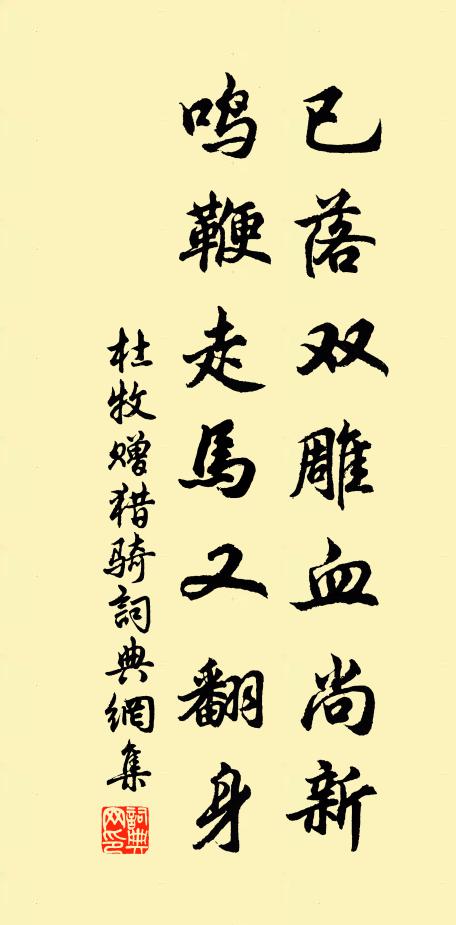 已落双雕血尚新
鸣鞭走馬又翻身
杜牧赠猎骑詞典網集
詞典网印